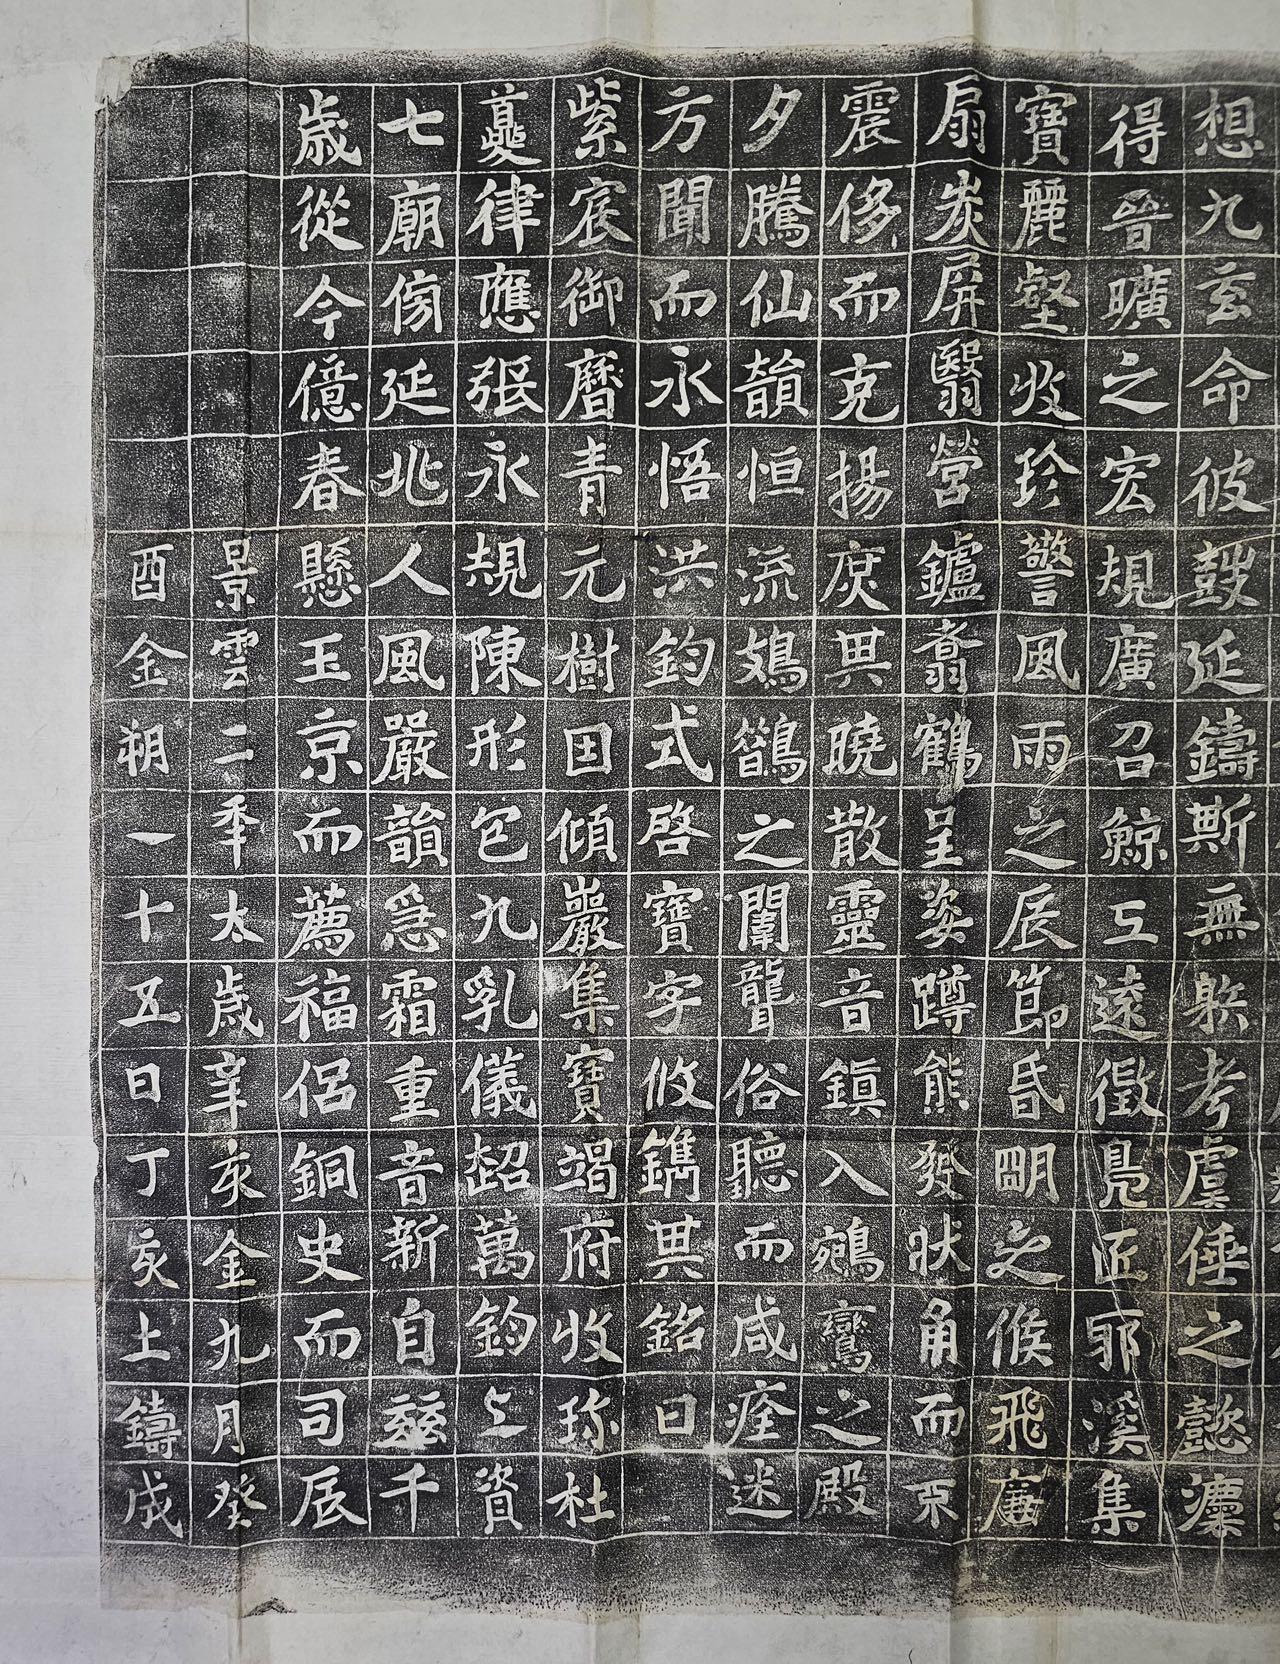 想九玄命彼鼓延鑄斯無躲考虞倕之懿灋
得晉曠之宏規廣召鯨工遠徵鳧匠邪溪集
寶麗壑收珍警風雨之辰節昏明之候飛廉
扇炭屏翳營鑪翥鶴呈姿蹲熊發狀角而不
震侈而克揚庶其曉散靈音鎮入鵷鸞之殿
夕騰仙韻恒流鳷鵲之闈聾俗聽而咸痊迷
方聞而永悟洪鈞式啓寶字攸鐫其銘曰
紫宸御曆青元樹因傾巖集寶竭府收珎杜
夔律應張永規陳形包九乳儀超萬鈞上資
七廟傍延兆人風嚴韻急霜重音新自茲千
歲從今億春懸玉京而薦福侶銅史而司辰
景雲二年太歲辛亥金九月癸
酉金朔一十五日丁亥土鑄成